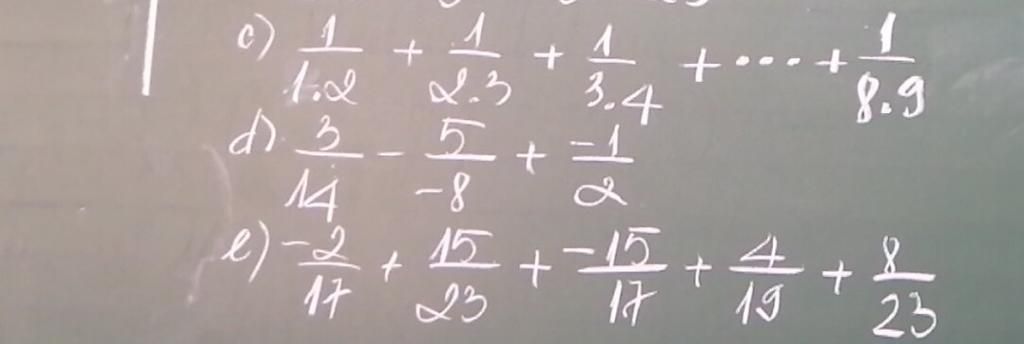 c) 1/1.2 + 1/2.3 + 1/3.4 + ... + 1/8.9
d) 3/14 - 5/-8 + -1/2
e) -2/17 + 15/23 + -15/17 + 4/19 + 8/23